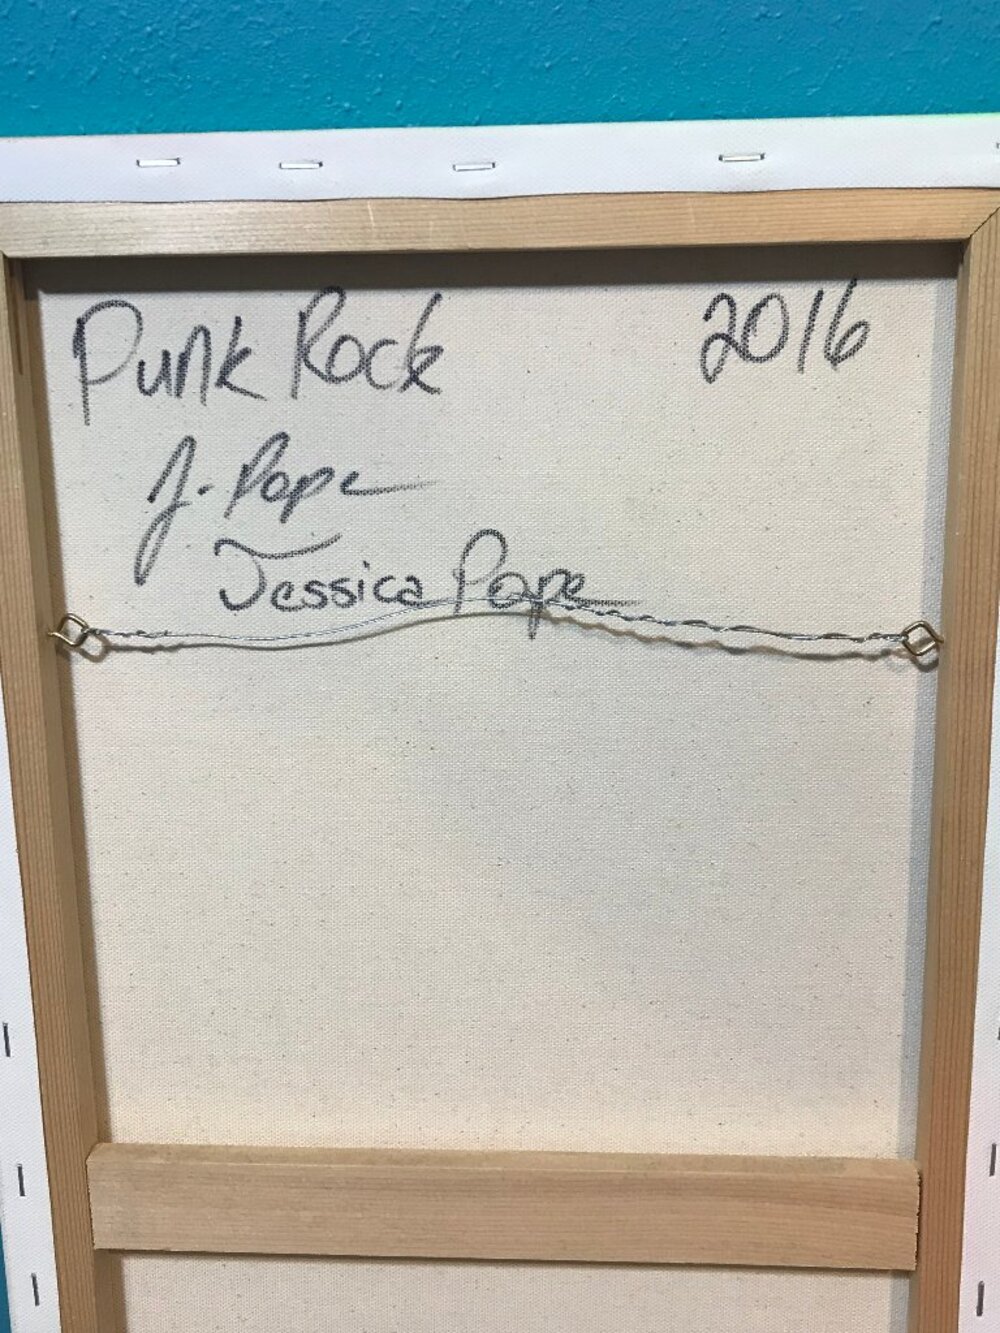 Punk Rock 2016
J. Pope
Jessica Pope